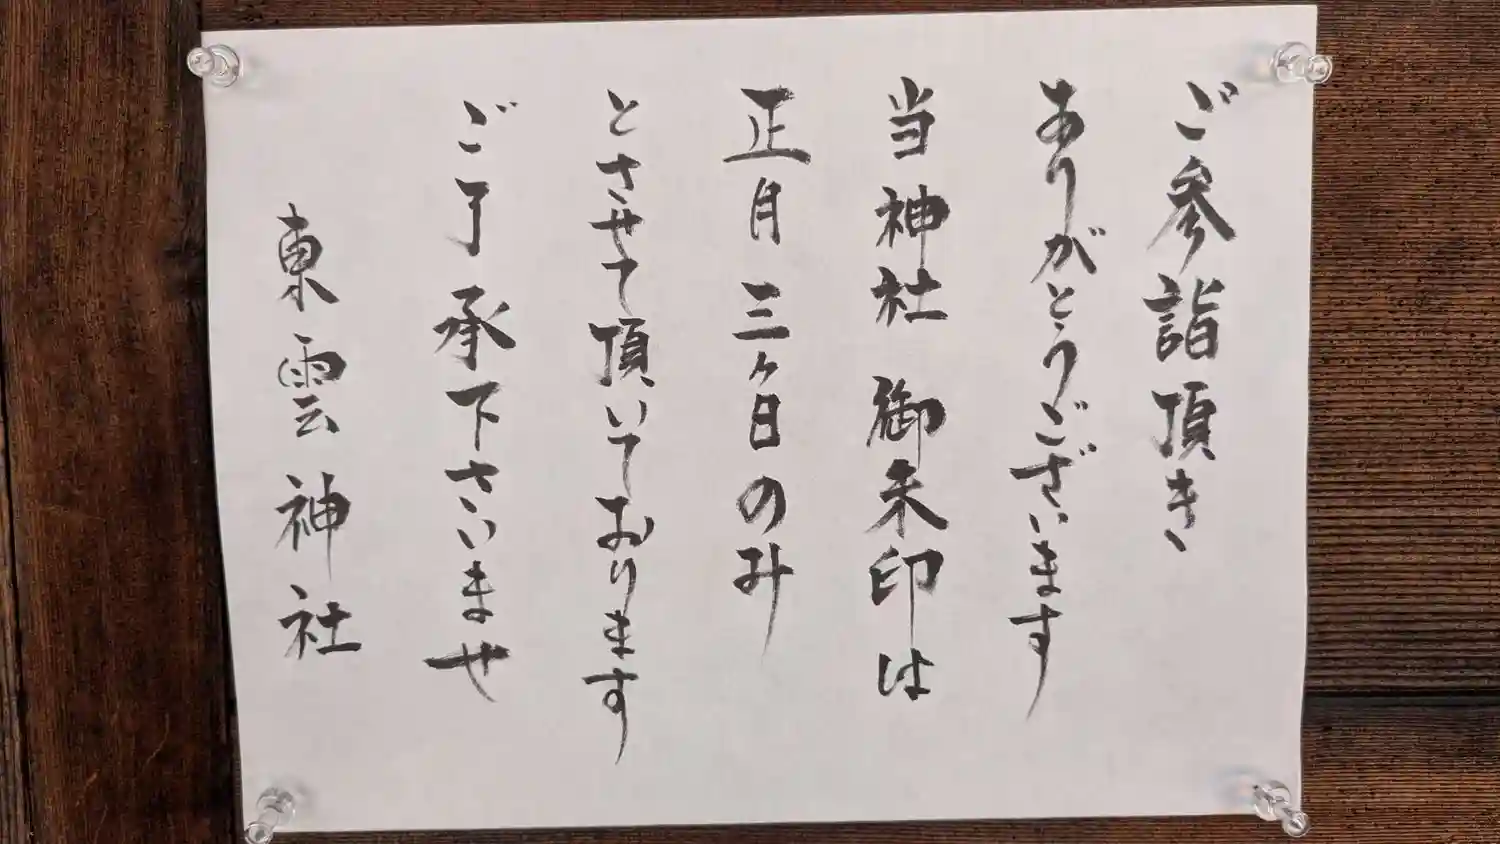 ご参詣頂き
ありがとうございます
当神社 御朱印は
正月三ヶ日のみ
とさせて頂いております
ご了承下さいませ
東雲神社